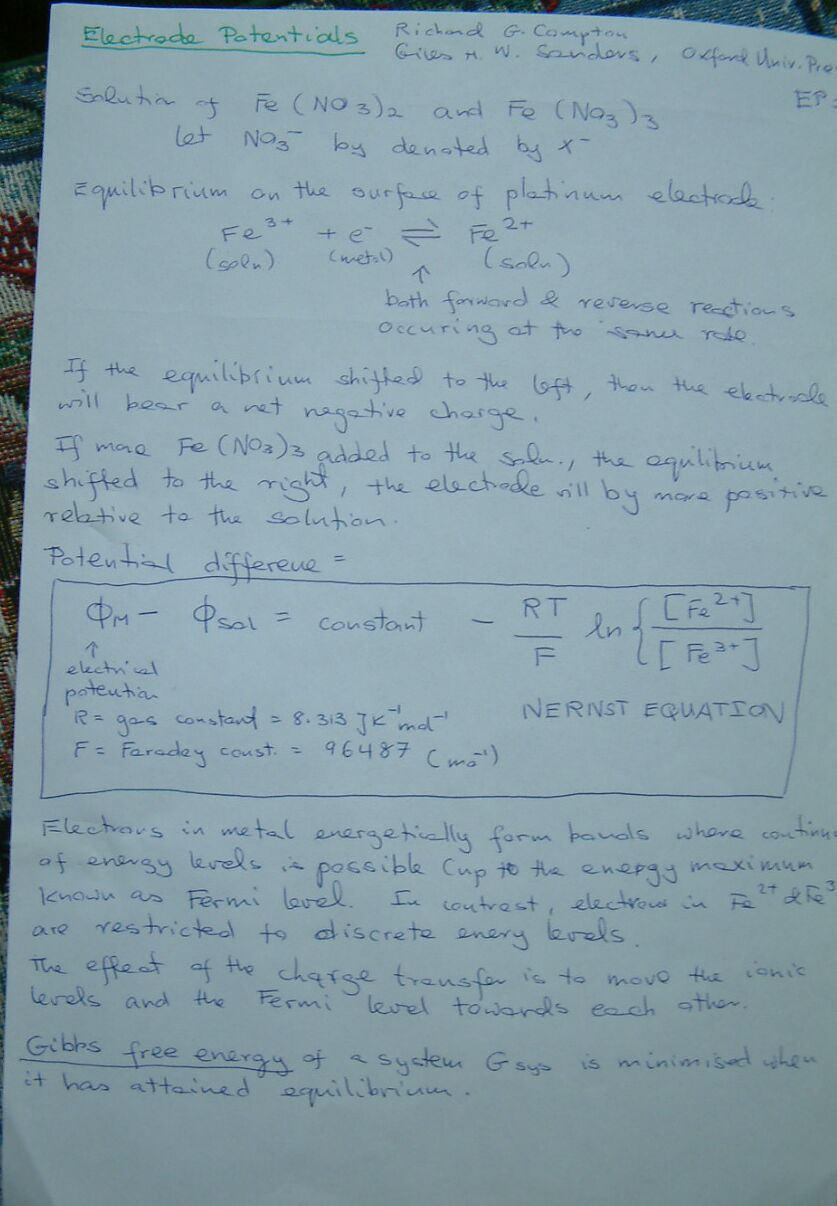 Electrode Potentials Richard G. Compton
Giles H. W. Sanders, Oxford Univ. Pre
EP
Solution of Fe (NO3)2 and Fe (NO3)3
let NO3⁻ by denoted by X⁻
Equilibrium on the surface of platinum electrode:
Fe³⁺ + e⁻ ⇌ Fe²⁺
(soln) (metal) (soln)
↑
both forward & reverse reactions
occuring at the same rate.
If the equilibrium shifted to the left, then the electrode
will bear a net negative charge.
If more Fe (NO3)3 added to the soln., the equilibrium
shifted to the right, the electrode will by more positive
relative to the solution.
Potential difference =
ΦM − ΦSol = constant − RT/F ln { [Fe²⁺] / [Fe³⁺]
↑
electrical
potention
R = gas constant = 8.313 JK⁻¹mol⁻¹ NERNST EQUATION
F = Faraday const. = 96487 (mol⁻¹)
Electrons in metal energetically form bands where continu
of energy levels is possible (up to the energy maximum
known as Fermi level. In contrast, electrons in Fe²⁺ & Fe³
are restricted to discrete enery levels.
The effect of the charge transfer is to move the ionic
levels and the Fermi level towards each other.
Gibbs free energy of a system Gsys is minimised when
it has attained equilibrium.